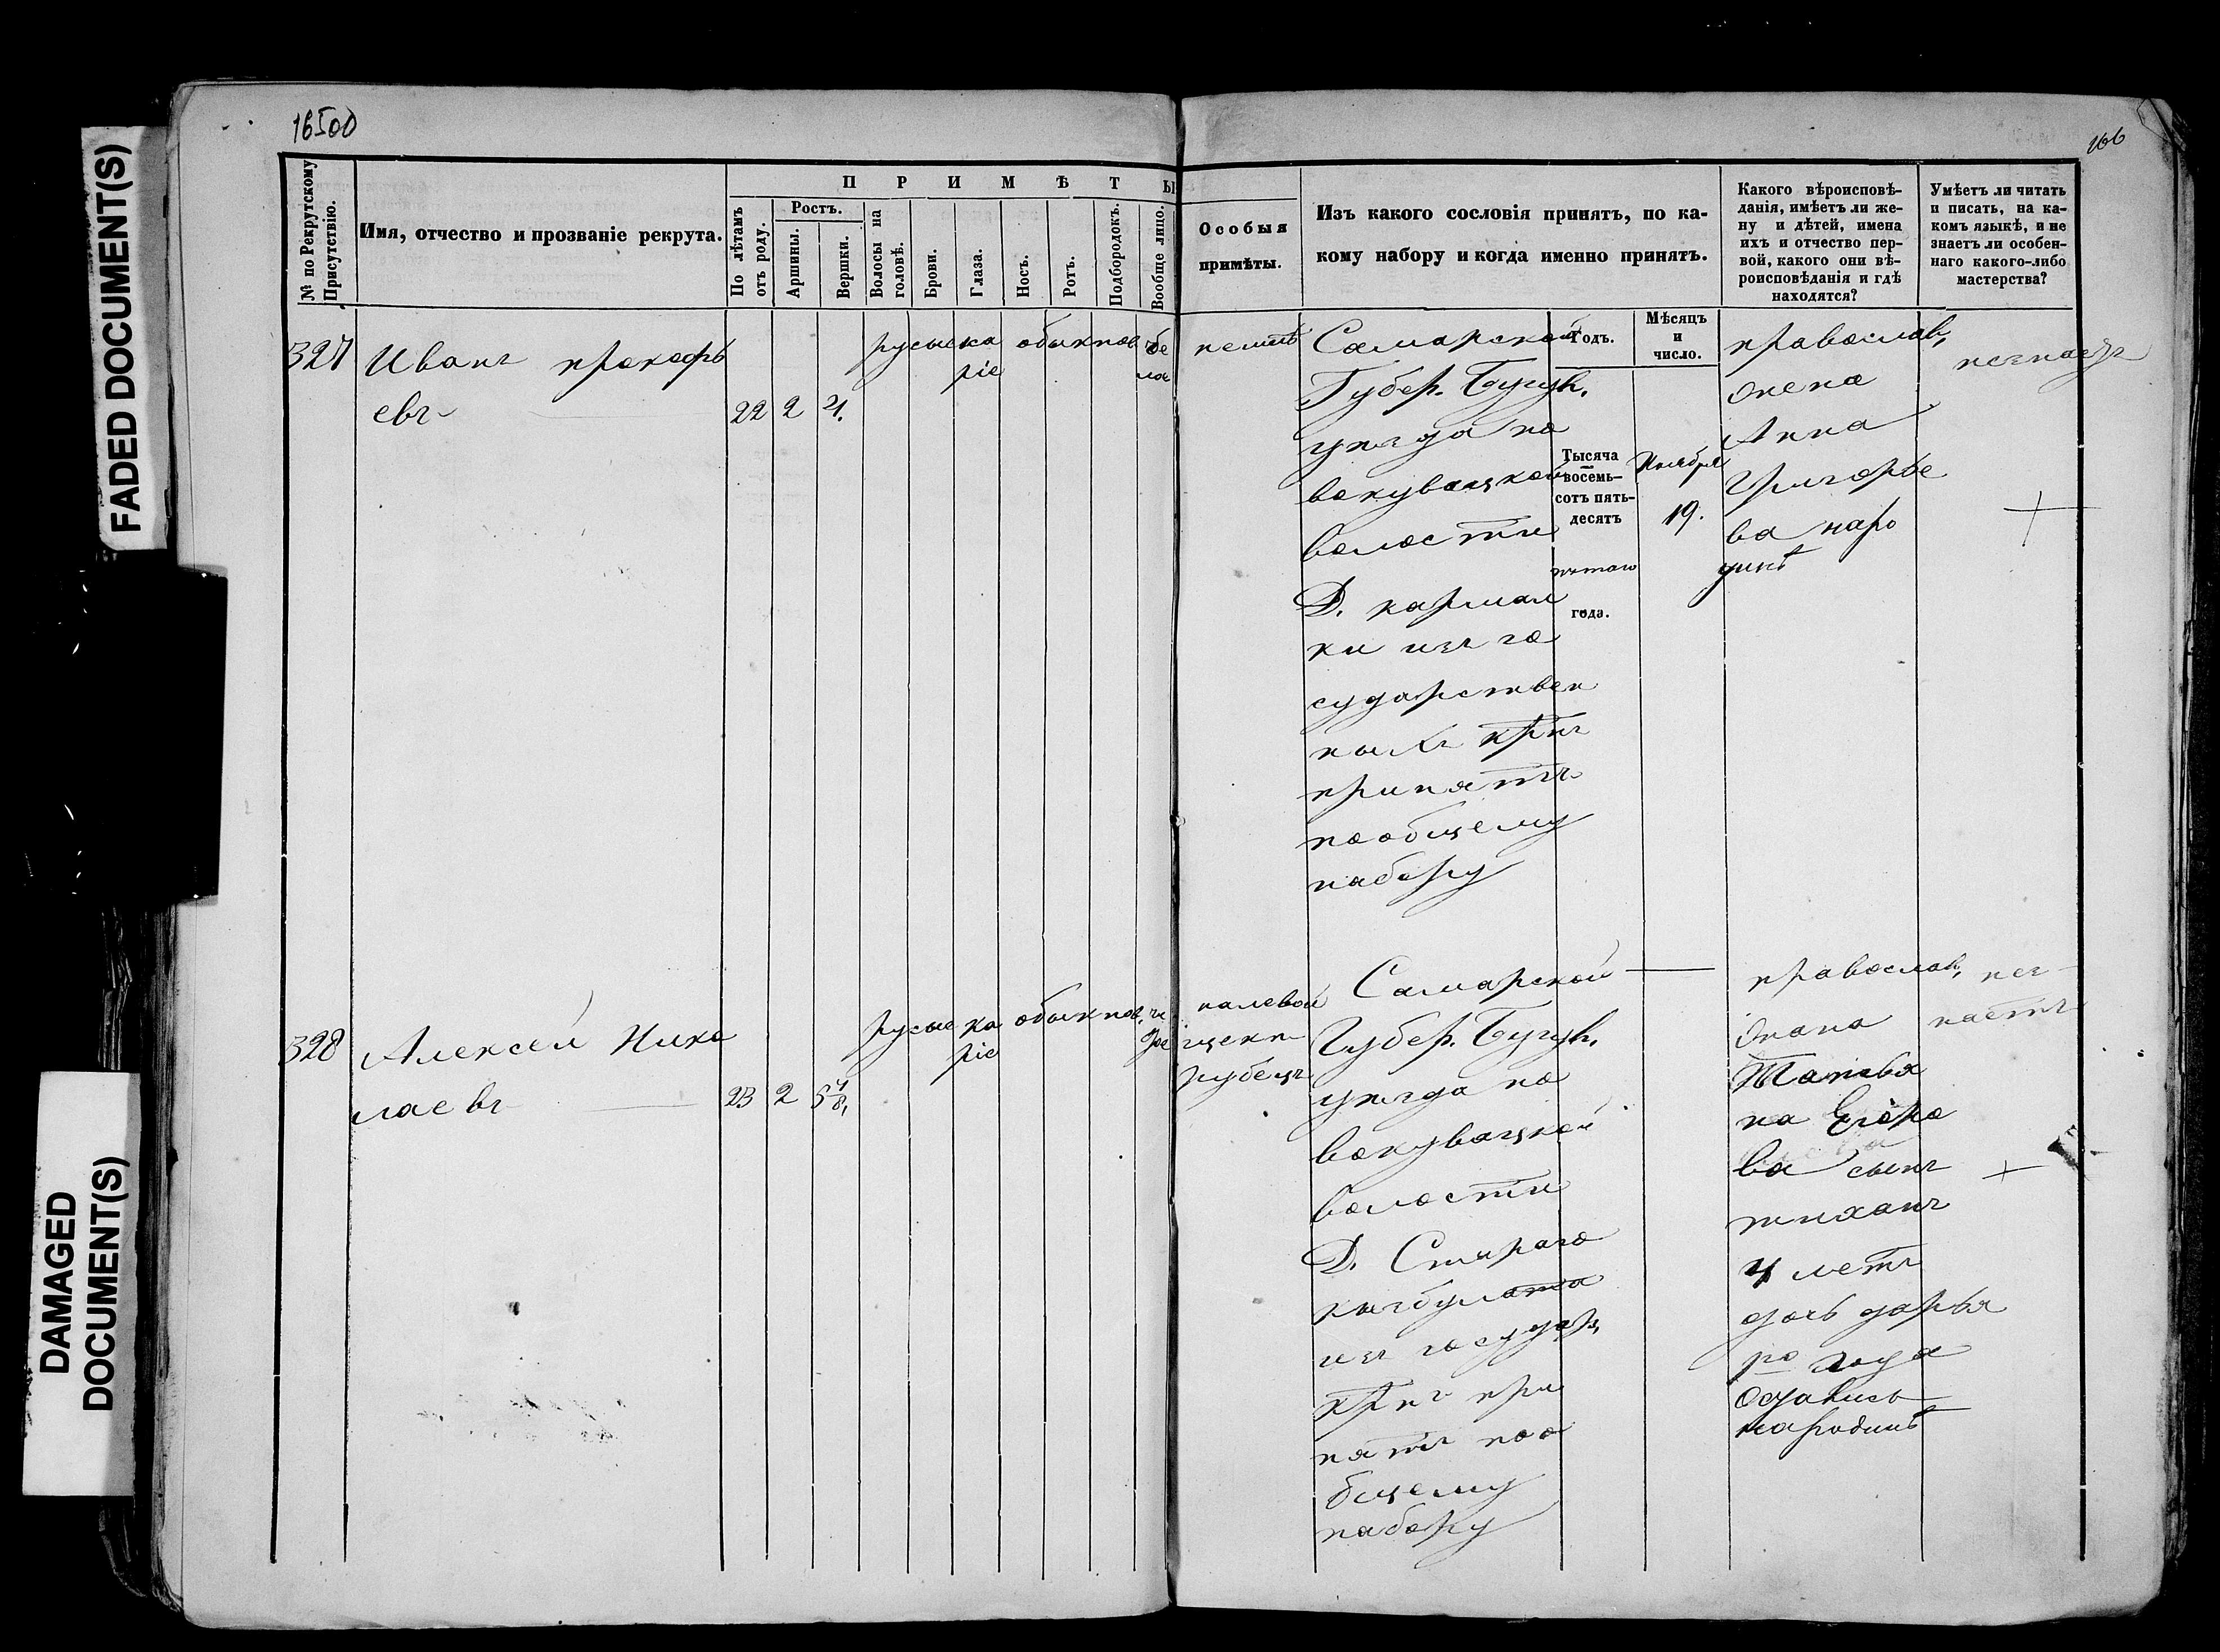 16500
166
FADED DOCUMENT(S)
DAMAGED
DOCUMENT(S)
№ по Рекрутскому
Присутствію.
Имя, отчество и прозваніе рекрута.
П Р И М Ѣ Т Ы
По лѣтамъ
отъ роду.
Ростъ.
Аршины.
Вершки.
Волосы на
головѣ.
Брови.
Глаза.
Носъ.
Ротъ.
Подбородокъ.
Вообще лицо.
Особыя
примѣты.
Изъ какого сословія принятъ, по ка-
кому набору и когда именно принятъ.
Какого вѣроисповѣ-
данія, имѣетъ ли же-
ну и дѣтей, имена
ихъ и отчество пер-
вой, какого они вѣ-
роисповѣданія и гдѣ
находятся?
Умѣетъ ли читать
и писать, на ка-
комъ языкѣ, и не
знаетъ ли особен-
наго какого-либо
мастерства?
Годъ.
Мѣсяцъ
и
число.
327
Иванъ прокофь
евъ
22 2 4.
русые ка
ріе
обыкнов,
бе
ло
нетъ
Самарской
Губер. Бугул.
уезда но
вокувацкой
волости
Д. кармал
ки изъ го
сударствен
ныхъ крнъ
принятъ
пообщему
набору
Тысяча
восемь-
сотъ пять-
десятъ
пятаго
года.
Ноября
19.
православ,
жена
Анна
Григорье
ва наро
динѣ
незнаетъ
328
Алексей Нико
лаевъ
23 2 5 4/8,
русые ка
ріе
обыкнов,
налевой
щекѣ
рубецъ
Самарской
Губер. Бугул.
уезда но
вокувацкой
волости
Д. Стараго
изъ государ,
крнъ при
нятъ поо
бщему
набору
православ,
жена
Татья
на Егоро
ва сынъ
тиханъ
4 летъ
дочь дарья
года
народинѣ
нез
наетъ